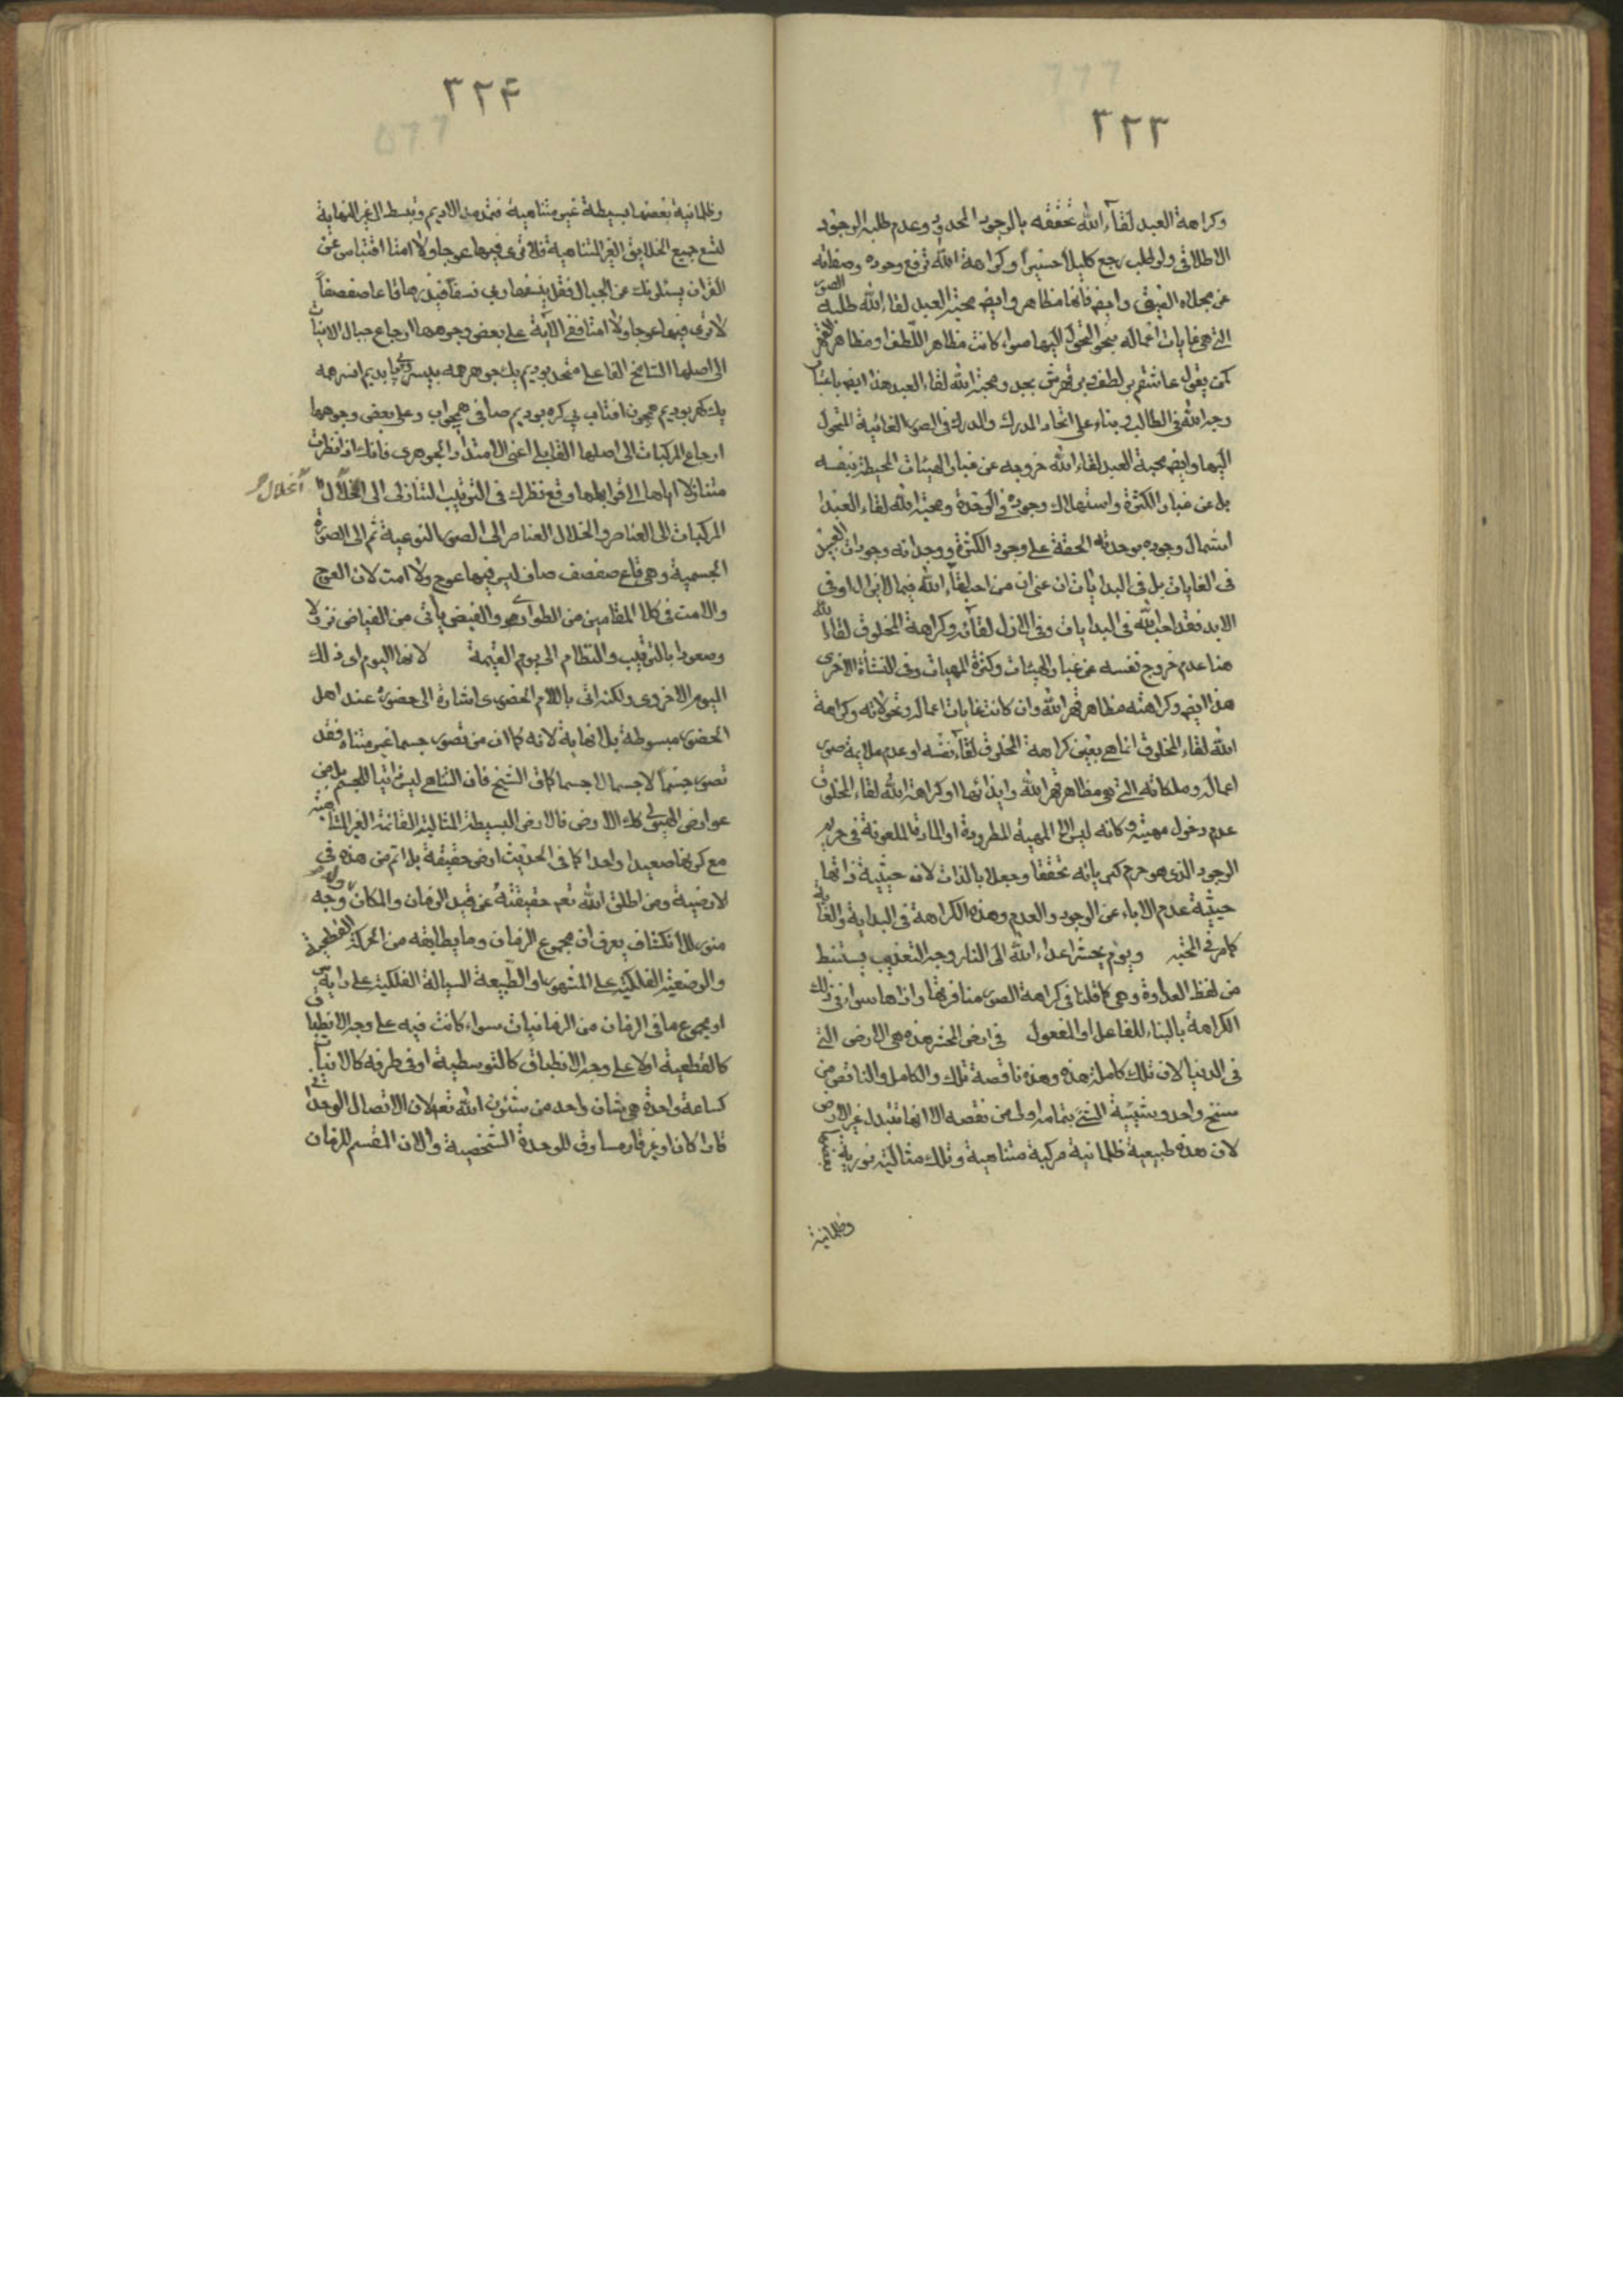 ٣٢٣
وكراهة العبد لقآء الله تحققه بالوجود الحدودى وعدم طلبه الوجود
الاطلاقى ولو طلب رجع كليلاً حسيراً وكراهة الله ترفع وجوده وصفاته
عن مجلاه الضيق وايضا فانها مظاهر وايضا محبة العبد لقاء الله طلبه الصور
التى هى غايات اعماله بنحو التحول اليها سواء كانت مظاهر اللطف او مظاهر القهر
كمن يقول عاشقم بر لطف وبر قهرش بجد ومحبة الله لقاء العبد هذا ايضا باعتبار
وجه الله فى الطالب وبناء على اتحاد المدرك والمدرك فى الصور الغائية المتحول
اليها وايضا محبة العبد لقاء الله خروجه عن غبار الهيئات المحيطة بنفسه
بل عن غبار الكثرة واستهلاك وجوده فى الوحدة ومحبة الله لقاء العبد
اشتمال وجوده بوحدته الحقة على وجود الكثرة ووجدانه وجودات
فى الغايات بل فى البدايات ان عنى ان من احب لقاء الله فيما لايزال او فى
الابد فقد احب الله فى البدايات وفى الازل لقآئه وكراهة المخلوق لقاء الله
هنا عدم خروج نفسه عن غبار الهيئات وكثرة المهيات وفى النشأة الاخرى
هذا ايضا وكراهته مظاهر قهر الله وان كانت غايات اعماله وتحولاته وكراهة
الله لقاء المخلوق انما هى بعين كراهة المخلوق لقآء نفسه او عدم ملايمة صور
اعماله وملكاته التى هى مظاهر قهر الله وايذائها او كراهة الله لقاء المخلوق
عدم دخول مهيته وكانه ليس الا المهية المطرودة او المادة الملعونة فى حريم
الوجود الذى هو حرم كبريائه تحققا وجعلا بالذات لان حيثية ذاتها
حيثية عدم الاباء عن الوجود والعدم وهذه الكراهة فى البداية والغاية
كامر فى المحبة ويوم يحشر اعداء الله الى النار وجه التعذيب يستنبط
من لفظ العداوة وهى كما قلنا فى كراهة الصور منافرتها واذاها سواء فى ذلك
الكراهة بالبناء للفاعل او المفعول فى ارض المحشر هذه هى الارض التى
فى الدنيا لان تلك كاملة هذه وهذه ناقصة تلك والكامل والناقص من
سنخ واحد وشيئية الشئ بتمامه اولى من نقصه الا انها تتبدل غير الارض
لان هذه طبيعية ظلمانية مركبة متناهية وتلك مثالية نورية
وظلمانية
٣٢۴
وظلمانية بعضها بسيطة غير متناهية فتمد مد الاديم وتبسط الى غير النهاية
لتسع جميع الخلايق الغير المتناهية فلا ترى فيها عوجا ولا امتا اقتباس عن
القران يسئلونك عن الجبال فقل ينسفها ربى نسفاً فيذرها قاعا صفصفاً
لا ترى فيها عوجا ولا امتا ففى الآية على بعض وجوهها ارجاع جبال الانيات
الى اصلها الشامخ الفاعلى متحد بوديم يك جوهر همه بيسر وبى پا بديم انسر همه
يك گهر بوديم همچون افتاب بى كره بوديم صافى همچو اب وعلى بعض وجوهها
ارجاع المركبات الى اصلها القابلى اعنى الامتداد الجوهرى فانك اذا نظرت
متنازلا اياها الى قوابلها وقع نظرك فى الترتيب التنازلى الى انحلال
انحلال
المركبات الى العناصر وانحلال العناصر الى الصور النوعية ثم الى الصورة
الجسمية وهى قاع صفصف صاف ليس فيها عوج ولا امت لان العوج
والامت فى كلا المقامين من الطوارى والفيض ياتى من الفياض نزولا
وصعودا بالترتيب والنظام الى يوم القيمة لانها اليوم اى ذلك
اليوم الاخروى ولكنه اتى باللام الحضورى اشارة الى حضوره عند اهل
الحضور مبسوطة بلا نهاية لانه كما ان من تصور جسما غير متناه فقد
تصور جسماً لا جسما لا جسما كما قال الشيخ فان التناهى ليس ذاتيا للجسم بل من
عوارض الهيولى كك الارض فالارض البسيطة المثالية القائمة الغير المتناهية
مع كونها صعيدا واحدا كما فى الحديث ارض حقيقة بل اتم من هذه فى
الارضية ومن اطلق الله تعم حقيقته عن قيد الزمان والمكان وجه
منور للانكشاف يعرف ان مجموع الزمان وما يطابقه من الحركة القطعية
والوضعية الفلكية على المشهور او الطبيعة السيالة الفلكية على رايه
او مجموع ما فى الزمان من الزمانيات سواء كانت فيه على وجه الانطباق
كالقطعية اولا على وجه الانطباق كالتوسطية او فى طرفه كالانيات
كساعة واحدة هى شان واحد من شئون الله تعم لان الاتصال الوحدانى
قارا كان او غير قار مساوق للوحدة الشخصية والان المقسم للزمان